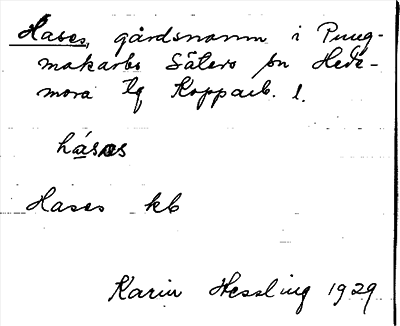 Hases, gårdsnamn i Pung-
makarbo Säters sn Hede-
mora tg Kopparb. l.
håsəs
Hases kb
Karin Hessling 1929